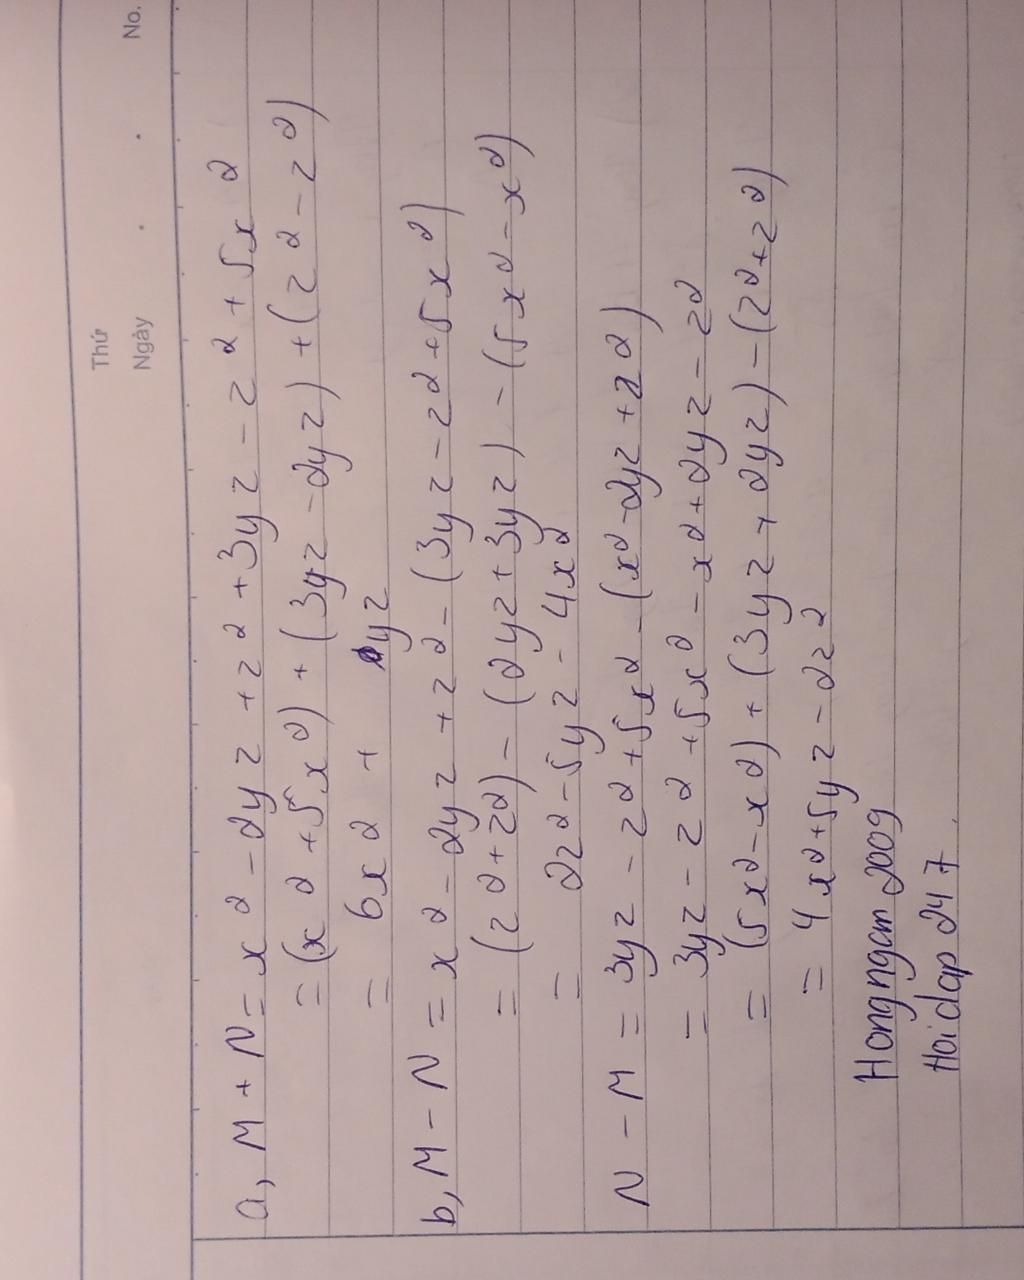 Thứ
Ngày . . No.
a, M + N = x² - 2yz + z² + 3yz - z² + 5x²
= (x² + 5x²) + (3yz - 2yz) + (z² - z²)
= 6x² + yz
b, M - N = x² - 2yz + z² - (3yz - z² + 5x²)
= (z² + z²) - (2yz + 3yz) - (5x² - x²)
= 2z² - 5yz - 4x²
N - M = 3yz - z² + 5x² - (x² - 2yz + z²)
= 3yz - z² + 5x² - x² + 2yz - z²
= (5x² - x²) + (3yz + 2yz) - (z² + z²)
= 4x² + 5yz - 2z²
Hongngam2009
Hoidap247